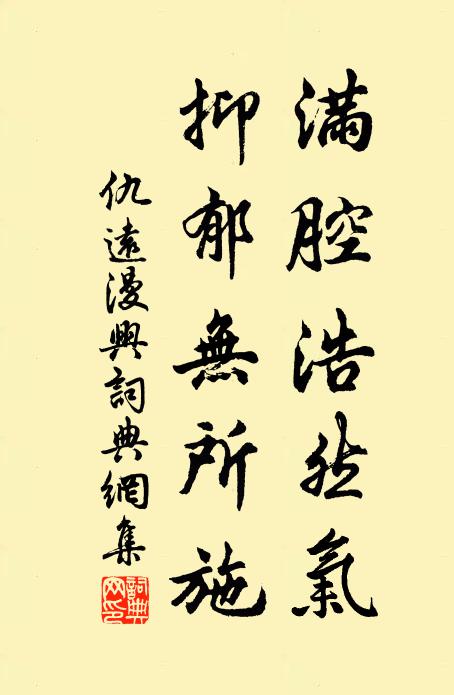 滿腔浩然氣
抑郁無所施
仇遠漫興詞典網集
詞典网印